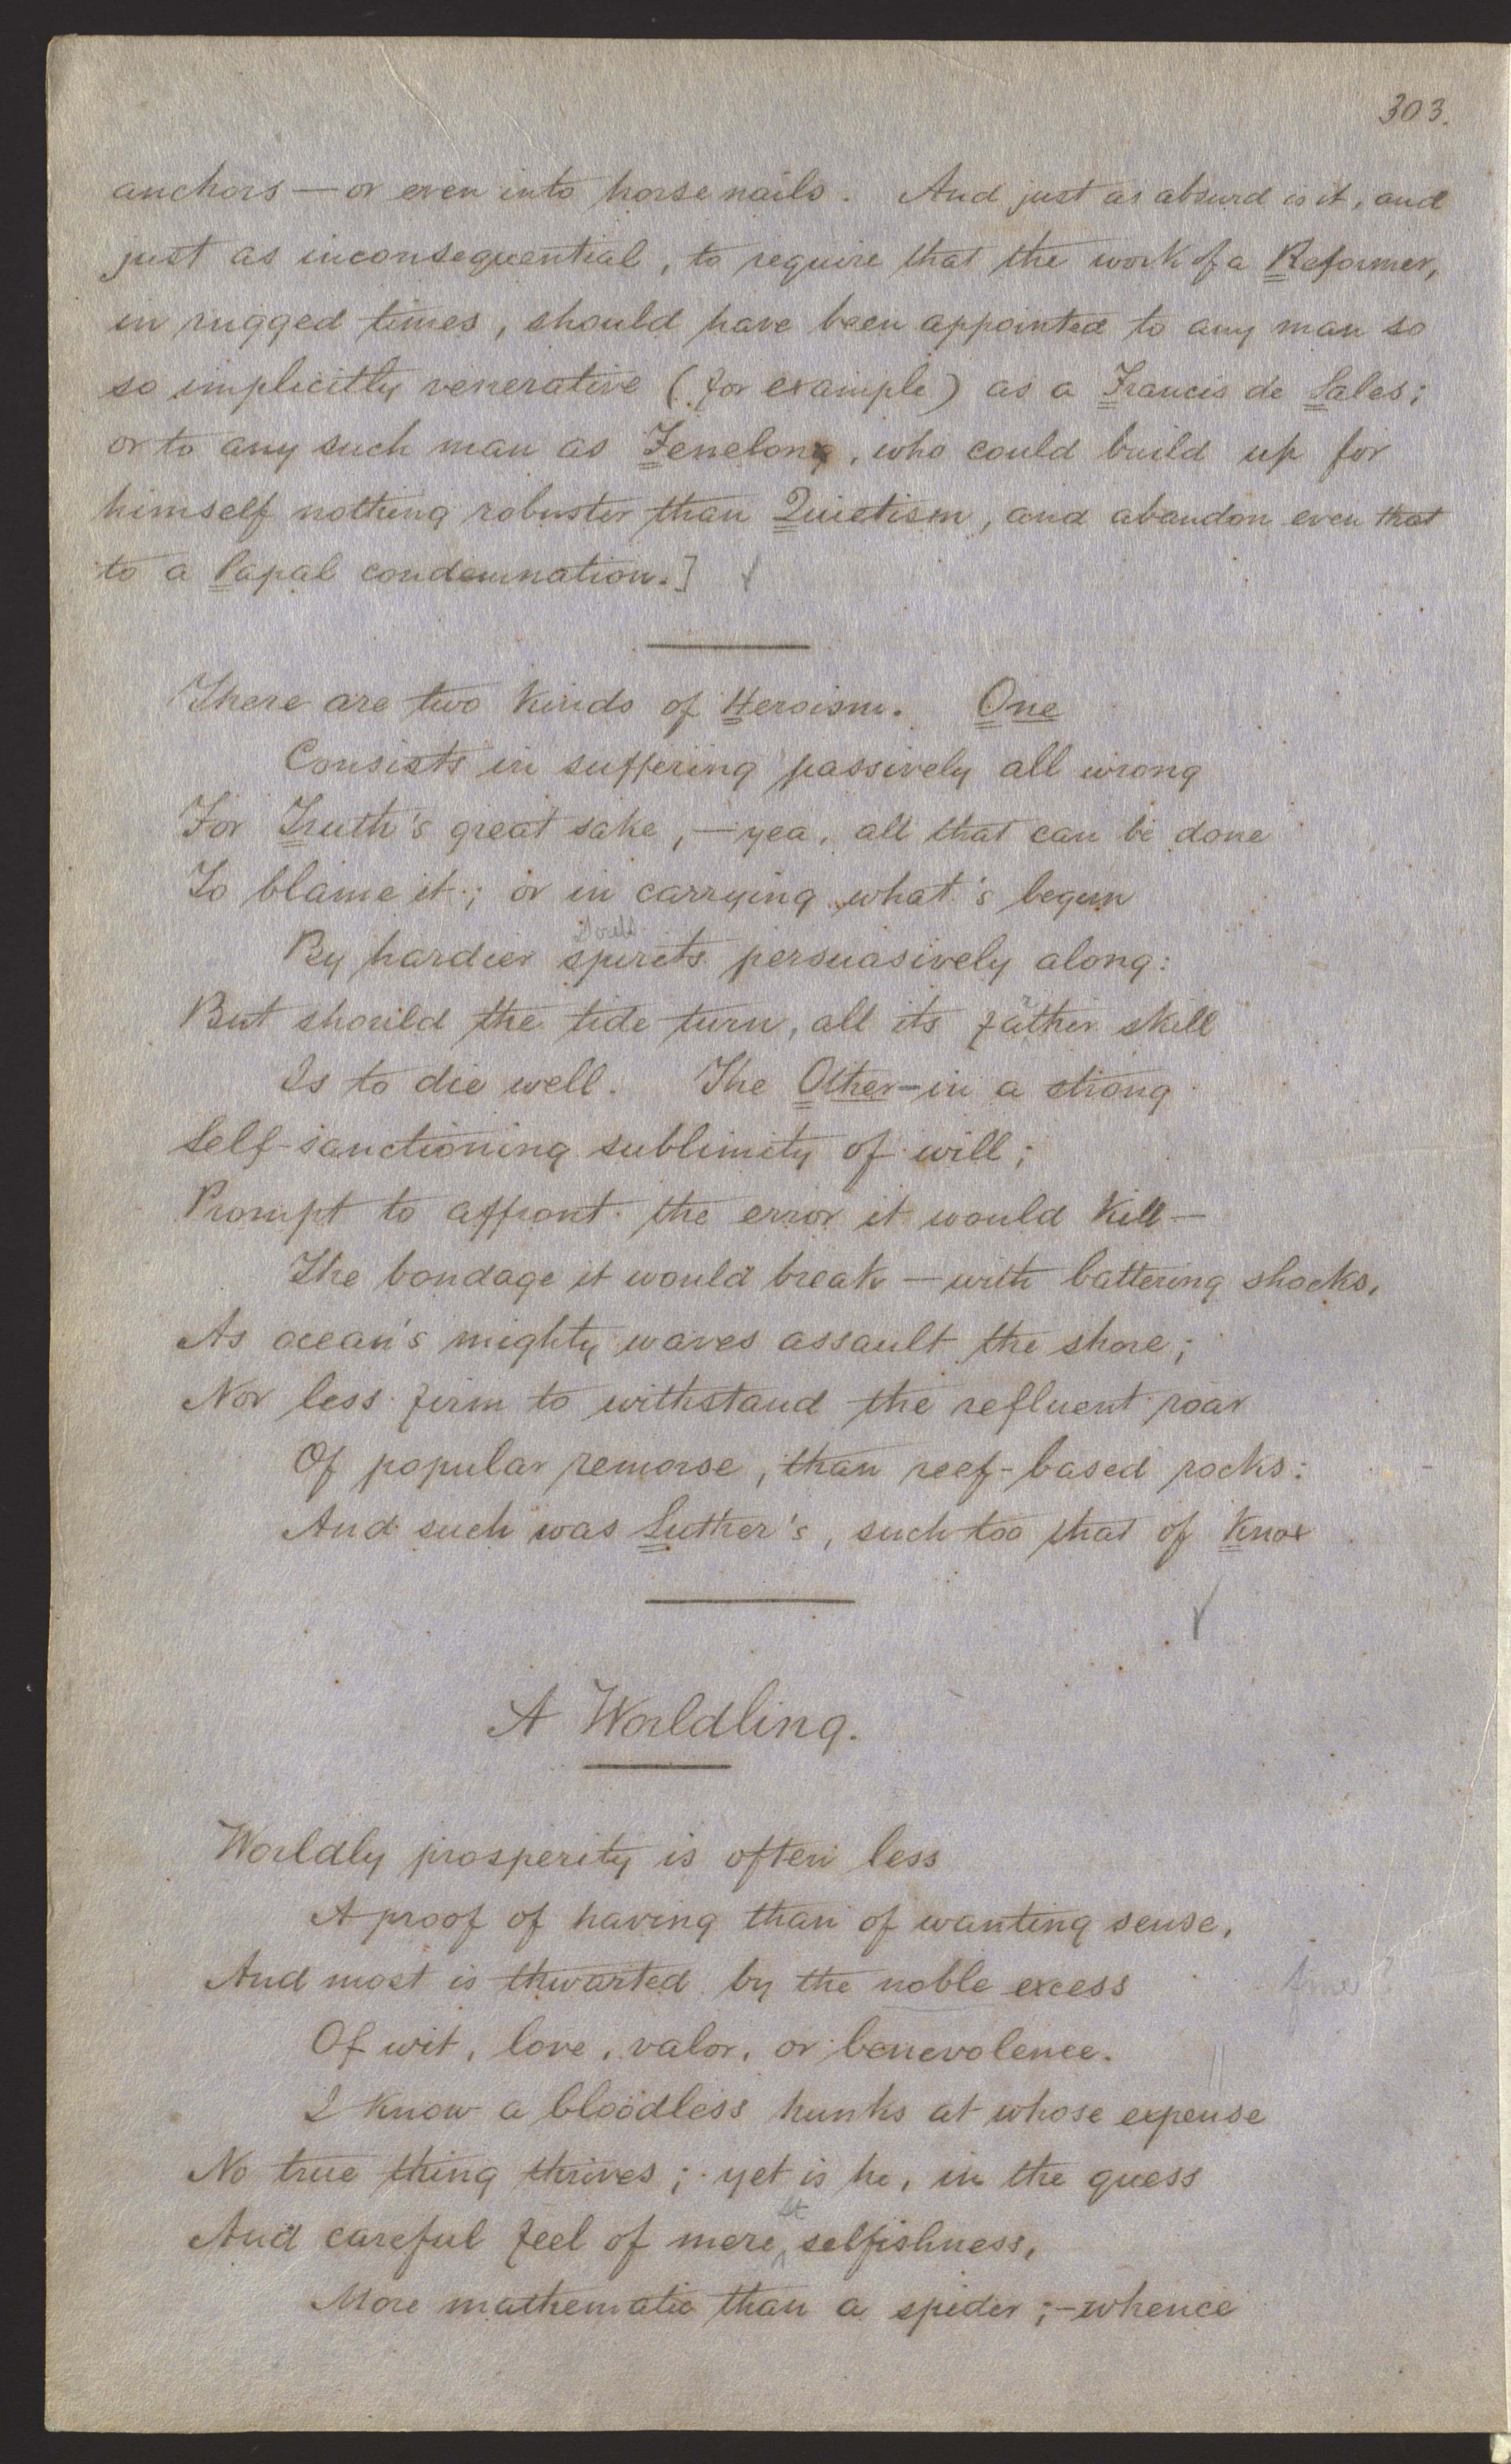 303.
anchors — or even into horse nails. And just as absurd is it, and
just as inconsequential, to require that the work of a Reformer,
in rugged times, should have been appointed to any man so
so implicitly venerative (for example) as a Francis de Sales;
or to any such man as Fenelon, who could build up for
himself nothing robuster than Quietism, and abandon even that
to a Papal condemnation.]
There are two kinds of Heroism. One
Consists in suffering passively all wrong
For Truth's great sake, — yea, all that can be done
To blame it; or in carrying what's begun
By hardier spirits persuasively along:
But should the tide turn, all its father skill
Is to die well. The Other – in a strong
Self-sanctioning sublimity of will;
Prompt to affront the error it would kill —
The bondage it would break — with battering shocks,
As ocean's mighty waves assault the shore;
Nor less firm to withstand the refluent roar
Of popular remorse, than reef-based rocks:
And such was Luther's, such too that of Knox
A Worldling.
Worldly prosperity is often less
A proof of having than of wanting sense,
And most is thwarted by the noble excess
Of wit, love, valor, or benevolence.
I know a bloodless hunks at whose expense
No true thing thrives; yet is he, in the guess
And careful feel of mere selfishness,
More mathematic than a spider; – whence